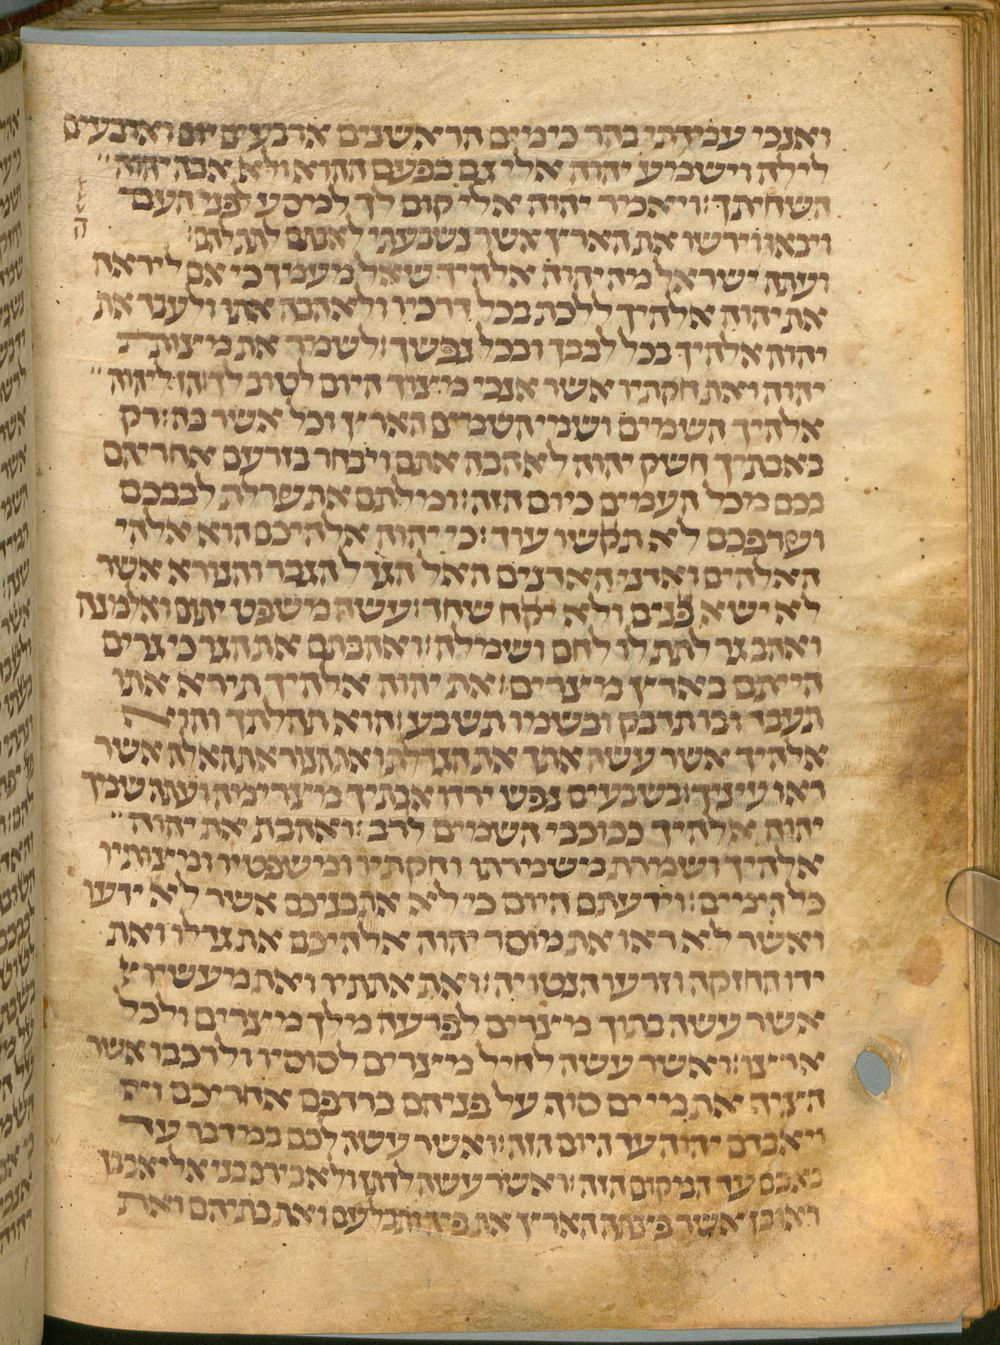 ואנכי עמדתי בהר כימים הראשנים ארבעים יום וארבעים
לילה וישמע יהוה אלי גם בפעם ההוא ולא אבה יהוה
השחיתך׃ ויאמר יהוה אלי קום לך למסע לפני העם
ויבאו וירשו את הארץ אשר נשבעתי לאבתם לתת להם׃
ועתה ישראל מה יהוה אלהיך שאל מעמך כי אם ליראה
את יהוה אלהיך ללכת בכל דרכיו ולאהבה אתו ולעבד את
יהוה אלהיך בכל לבבך ובכל נפשך׃ לשמר את מיצות
יהוה ואת חקתיו אשר אנכי מיצוך היום לטוב לך׃ הן ליהוה
אלהיך השמים ושמי השמים הארץ וכל אשר בה׃ רק
באבתיך חשק יהוה לאהבה אתם ויבחר בזרעם אחריהם
בכם מכל העמים כיום הזה׃ ומלתם את ערלת לבבכם
וערפכם לא תקשו עוד׃ כי יהוה אלהיכם הוא אלהי
האלהים ואדני האדנים האל הגדל הגבר והנורא אשר
לא ישא פנים ולא יקח שחד׃ עשה משפט יתום ואלמנה
ואהב גר לתת לו לחם ושימלה׃ ואהבתם את הגר כי גרים
הייתם בארץ מיצרים׃ את יהוה אלהיך תירא אתו
תעבד ובו תדבק ובשמו תשבע׃ הוא תהלתך והוא
אלהיך אשר עשה אתך את הגדלת ואת הנוראת האלה אשר
ראו עיניך׃ בשבעים נפש ירדו אבתיך מיצרימה ועתה שמך
יהוה אלהיך ככוכבי השמים לרב׃ ואהבת את יהוה
אלהיך ושמרת מישמרתו וחקתיו ומישפטיו ומיצותיו
כל הימים׃ וידעתם היום כי לא את בניכם אשר לא ידעו
ואשר לא ראו את מוסר יהוה אלהיכם את גדלו ואת
ידו החזקה וזרעו הנטויה׃ ואת אתתיו ואת מעשיו
אשר עשה בתוך מיצרים לפרעה מלך מיצרים ולכל
ארצו׃ ואשר עשה לחיל מיצרים לסוסיו ולרכבו אשר
הציף את מי ים סוף על פניהם ברדפם אחריכם
ויאבדם יהוה עד היום הזה׃ ואשר עשה לכם במדבר עד
באכם עד המקום הזה׃ ואשר עשה לדתן ולאבירם בני אליאב בן
ראובן אשר פיצתה הארץ את פיה ותבלעם ואת בתיהם ואת